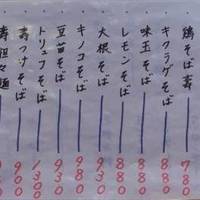 鶏そば寿 780
キクラゲそば 880
味玉そば 880
レモンそば 880
大根そば 930
キノコそば 980
豆苗そば 930
トリュフそば 1300
寿つけそば 900
寿担々麺